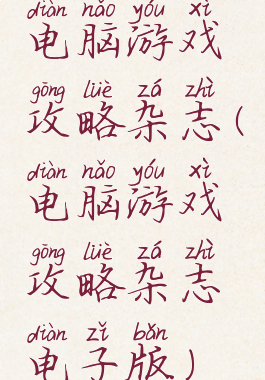 diàn nǎo yóu xì
电脑游戏
gōng lüè zá zhì
攻略杂志(
diàn nǎo yóu xì
电脑游戏
gōng lüè zá zhì
攻略杂志
diàn zǐ bǎn
电子版)